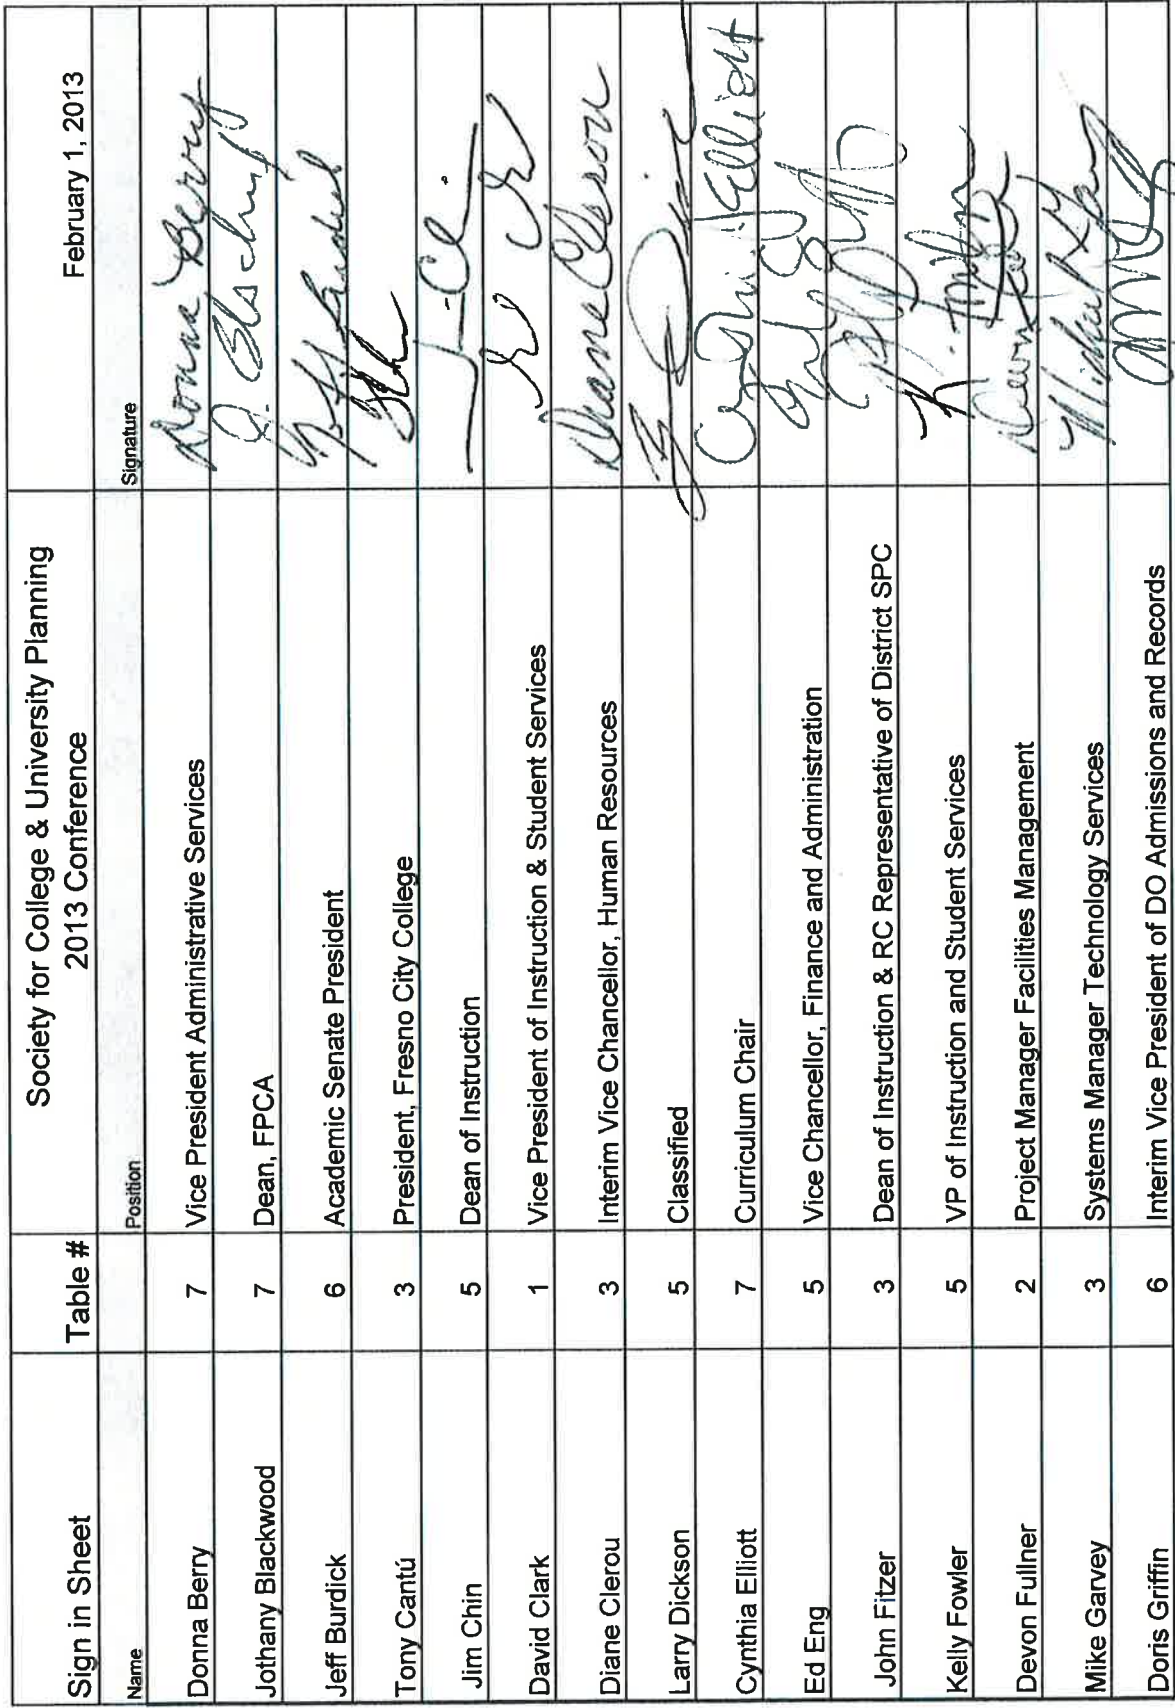 Sign in Sheet Table # Society for College & University Planning February 1, 2013
2013 Conference
Name Position Signature
Donna Berry 7 Vice President Administrative Services Donna Berry
Jothany Blackwood 7 Dean, FPCA
Jeff Burdick 6 Academic Senate President Jeff Burdick
Tony Cantú 3 President, Fresno City College
Jim Chin 5 Dean of Instruction
David Clark 1 Vice President of Instruction & Student Services
Diane Clerou 3 Interim Vice Chancellor, Human Resources Diane Clerou
Larry Dickson 5 Classified
Cynthia Elliott 7 Curriculum Chair Cynthia Elliott
Ed Eng 5 Vice Chancellor, Finance and Administration
John Fitzer 3 Dean of Instruction & RC Representative of District SPC
Kelly Fowler 5 VP of Instruction and Student Services
Devon Fullner 2 Project Manager Facilities Management
Mike Garvey 3 Systems Manager Technology Services
Doris Griffin 6 Interim Vice President of DO Admissions and Records